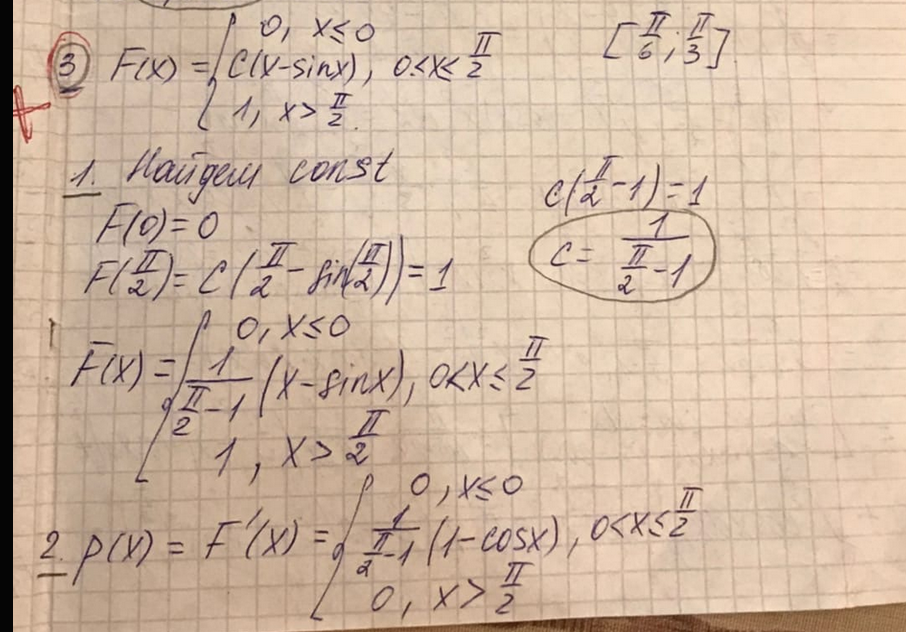 ③ F(x) = { 0, x ≤ 0
C(x-sinx), 0<x≤ π/2
1, x > π/2.
[π/6; π/3].
1. Найдем const
F(0)=0
F(π/2)= C(π/2 - sin(π/2))=1
C(π/2 -1)=1
C= 1/(π/2 -1)
F(x) = { 0, x≤0
1/(π/2 -1) (x-sinx), 0<x≤ π/2
1, x> π/2
2. p(x) = F'(x) = { 0, x≤0
1/(π/2 -1) (1-cosx), 0<x≤ π/2
0, x> π/2